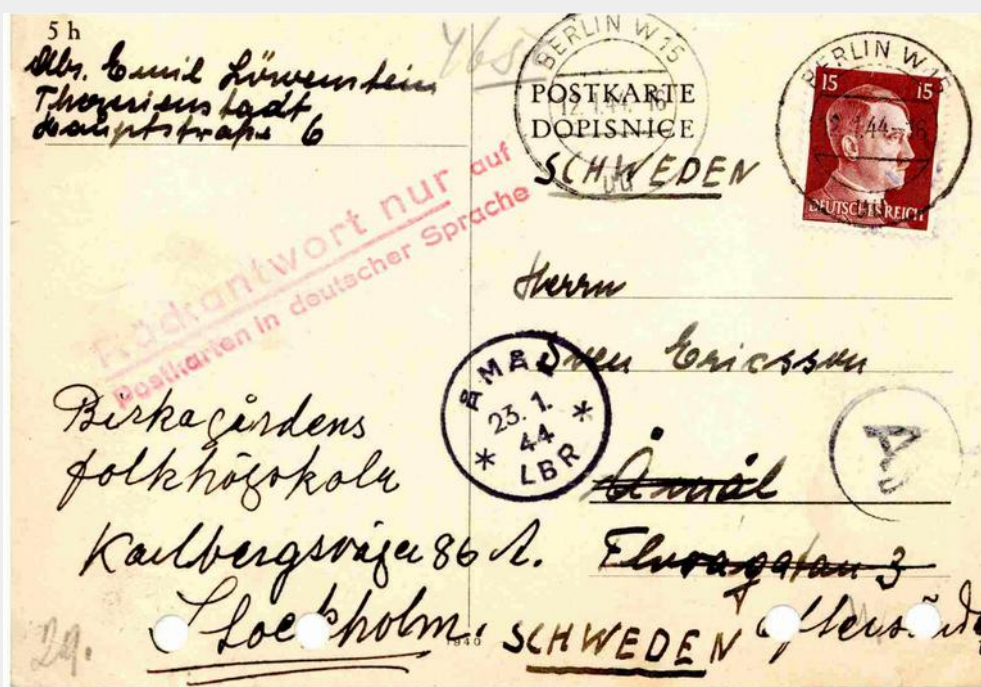 5 h
Abs. Emil Löwenstein
Theresienstadt
Hauptstraße 6
465
BERLIN W 15
12.1.44.-16
uu
POSTKARTE
DOPISNICE
SCHWEDEN
BERLIN W 15
1.44.-16
15 15
DEUTSCHES REICH
Rückantwort nur auf
Postkarten in deutscher Sprache
Herrn
Sven Ericsson
Åmål
3
SCHWEDEN
ÅMÅL
23.1.
44
LBR
A
Birkagårdens
folkhögskola
Karlbergsvägen 86 A.
Stockholm.
Eftersändes
1940
29.